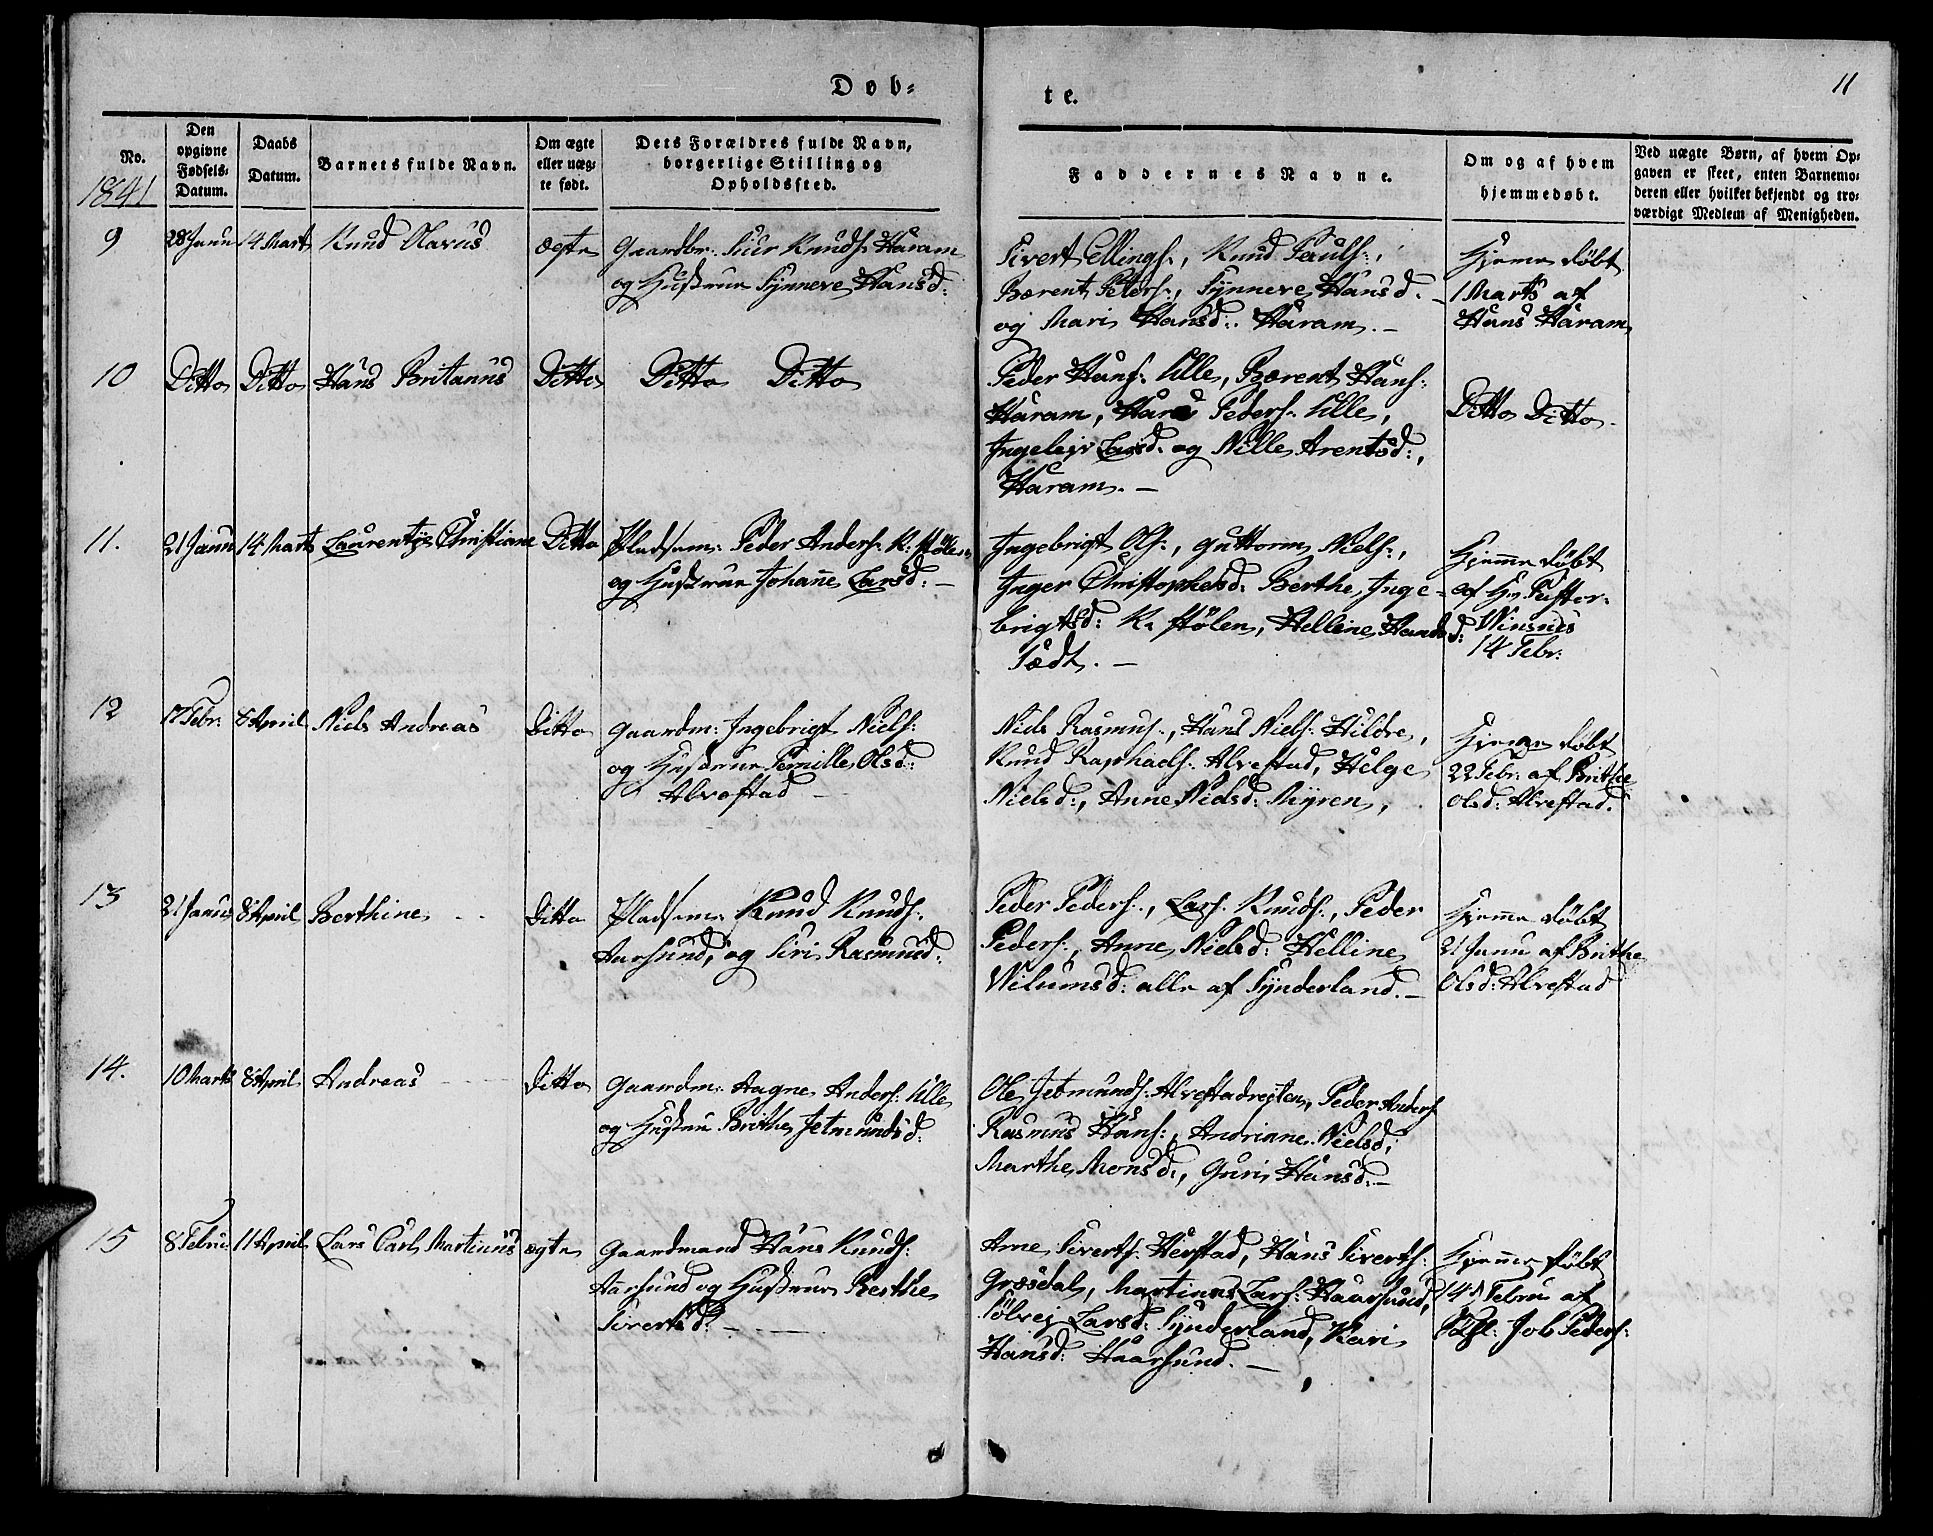 Døb-
te.
11
No.
1841
Den
opgivne
Fødsels-
Datum.
Daabs
Datum.
Barnets fulde Navn.
Om ægte
eller uæg-
te født.
Dets Forældres fulde Navn,
borgerlige Stilling og
Opholdssted.
Faddernes Navne.
Om og af hvem
hjemmedøbt.
Ved uægte Børn, af hvem Op-
gaven er skeet, enten Barnemo-
deren eller hvilket bekjendt og tro-
værdigt Medlem af Menigheden.
9
28 Janu
14 Marts
Knud Olavus
ægte
Gaardbr: Siver Knuds: Haram
og Hustrue Synneve Hansd:
Sivert Ellings:, Knud Pauls:,
Bærent Peters:, Synneve Hansd. -
og Mari Hansd: Haram. -
Hjemme døbt
1 Marts af
Hans Haram
10
Ditto
Ditto
Hans Britanus
Ditto
Ditto Ditto
Peder Hans: Ulle, Bærent Hans:
Haram, Hans Peders: Ulle,
Ingeleiv Larsd. og Nille Arentsd:,
Haram. -
Ditto Ditto.
11.
21 Janu
14 Marts
Laurentze Christiane
Ditto
Pladsm: Peder Anders: K: Stølen
og Hustrue Johanne Larsd: -
Ingebrigt Ols:, Guttorm Niels:,
Inger Christophersd. Berthe Inge-
brigtsd: K: Stølen, Helline Hansd:
Sædt. -
Hjemme døbt
af Hr Pastor
Winsnes
14 Febr:
12
17 Febr:
8 April
Niels Andreas
Ditto
Gaardm: Ingebrigt Niels:
og Hustrue Pernille Olsd:
Alvestad -
Niels Rasmus:, Hans Niels: Hildre,
Knud Raphaels: Alvestad, Helge
Nielsd:, Anne Nielsd: Myren,
Hjemme døbt
22 Febr: af Brithe
Olsd: Alvestad.
13
21 Janu
8 April
Berthine
Ditto
Pladsm: Knud Knuds:
Aarsund, og Siri Rasmusd:
Peder Peders:, Lars Knuds:, Peder
Peders:, Anne Nielsd: Helline
Wilumsd: alle af Synderland. -
Hjemme døbt
21 Janu af Brithe
Olsd: Alvestad
14.
10 Marts
8 April
Andreas
Ditto
Gaardm: Aagne Anders: Ulle
og Hustru Brithe Jetmundsd:
Ole Jetmunds: Alvestadrejten, Peder Anders
Rasmus Hans:, Andriane Nielsd,
Marthe Monsd:, Guri Hansd. -
15
8 Febru:
11 April
Lars Carl Martinus
ægte
Gaardmand Hans Knuds:
Aarsund og Hustrue Berthe
Sivertsd: -
Arne Siverts: Hepstad, Hans Siverts:
Græsdal, Martinus Lars: Haarsund,
Sølvej Larsd: Synderland, Kari
Hansd: Haarsund. -
Hjemme døbt
14 Febru af
Job Peders: